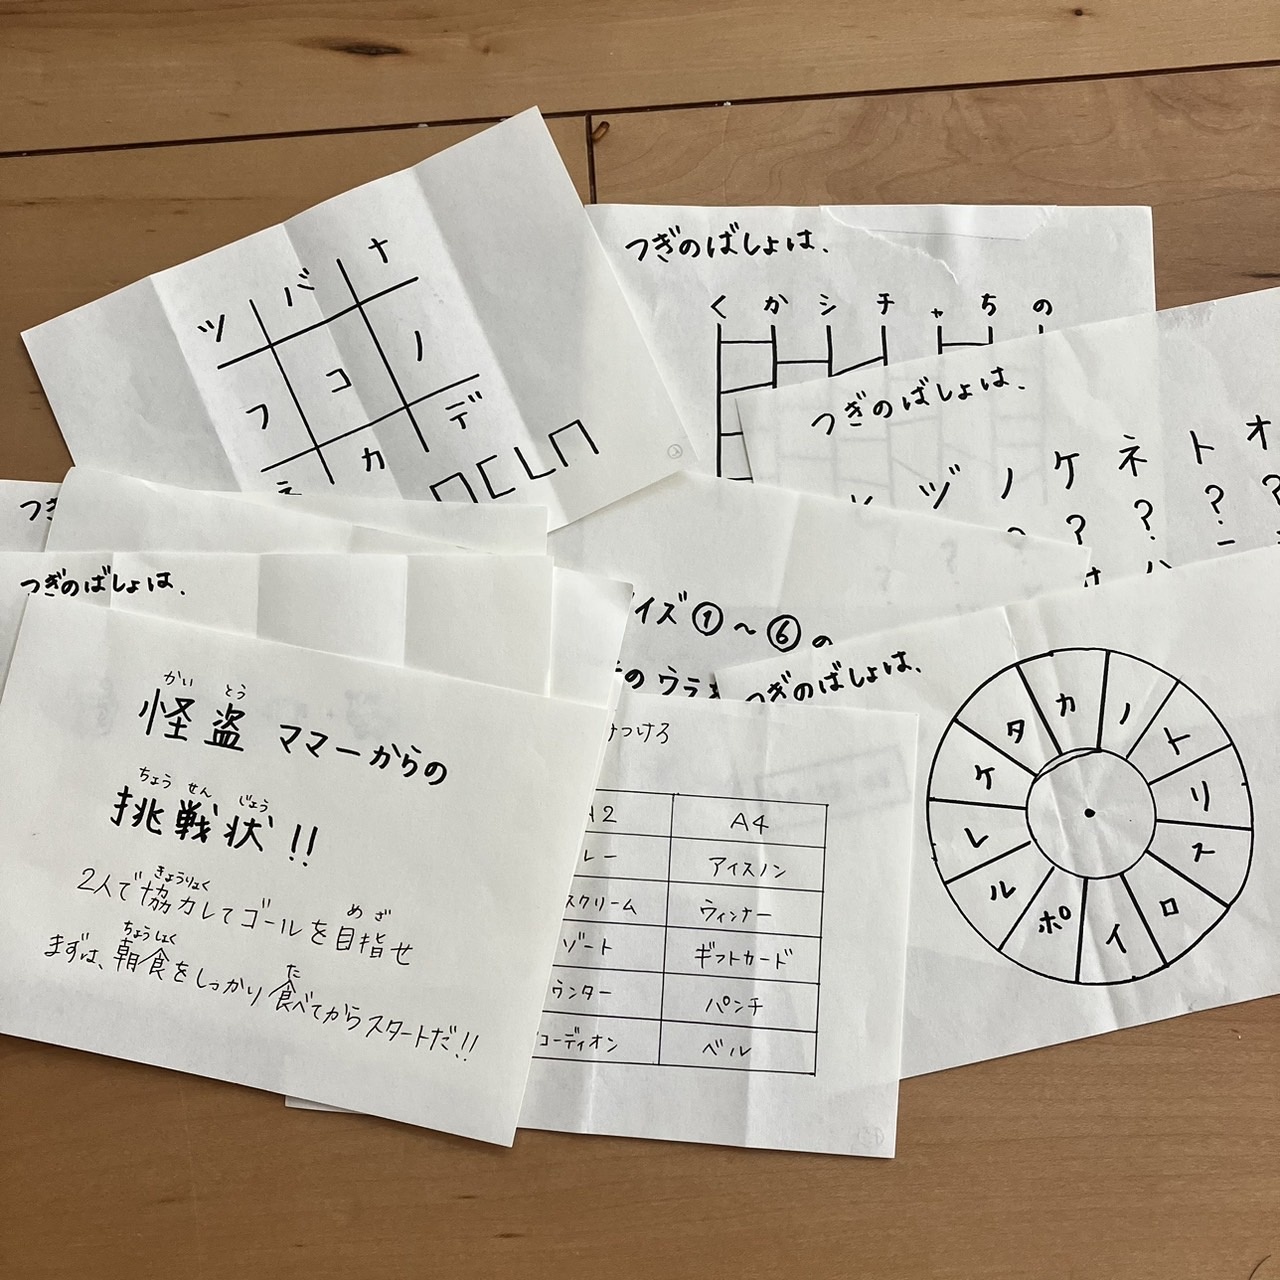 ツ バ ナ
フ コ ノ
カ デ
つぎのばしょは、
く か シ チ ャ ち の
つぎのばしょは、
ヅ ノ ケ ネ ト オ
? ? ? ?
つぎ
つぎのばしょは、
イズ①〜⑥の
のウラ
つぎのばしょは、
カ ノ ト リ ス ロ イ ポ ル レ ケ タ
かい とう
怪盗ママーからの
ちょう せん じょう
挑戦状!!
きょうりょく め ざ
2人で協力してゴールを目指せ
ちょうしょく た
まずは、朝食をしっかり食べてからスタートだ!!
つけろ
2 A4
レー アイスノン
スクリーム ウィンナー
ゾート ギフトカード
ウンター パンチ
コーディオン ベル